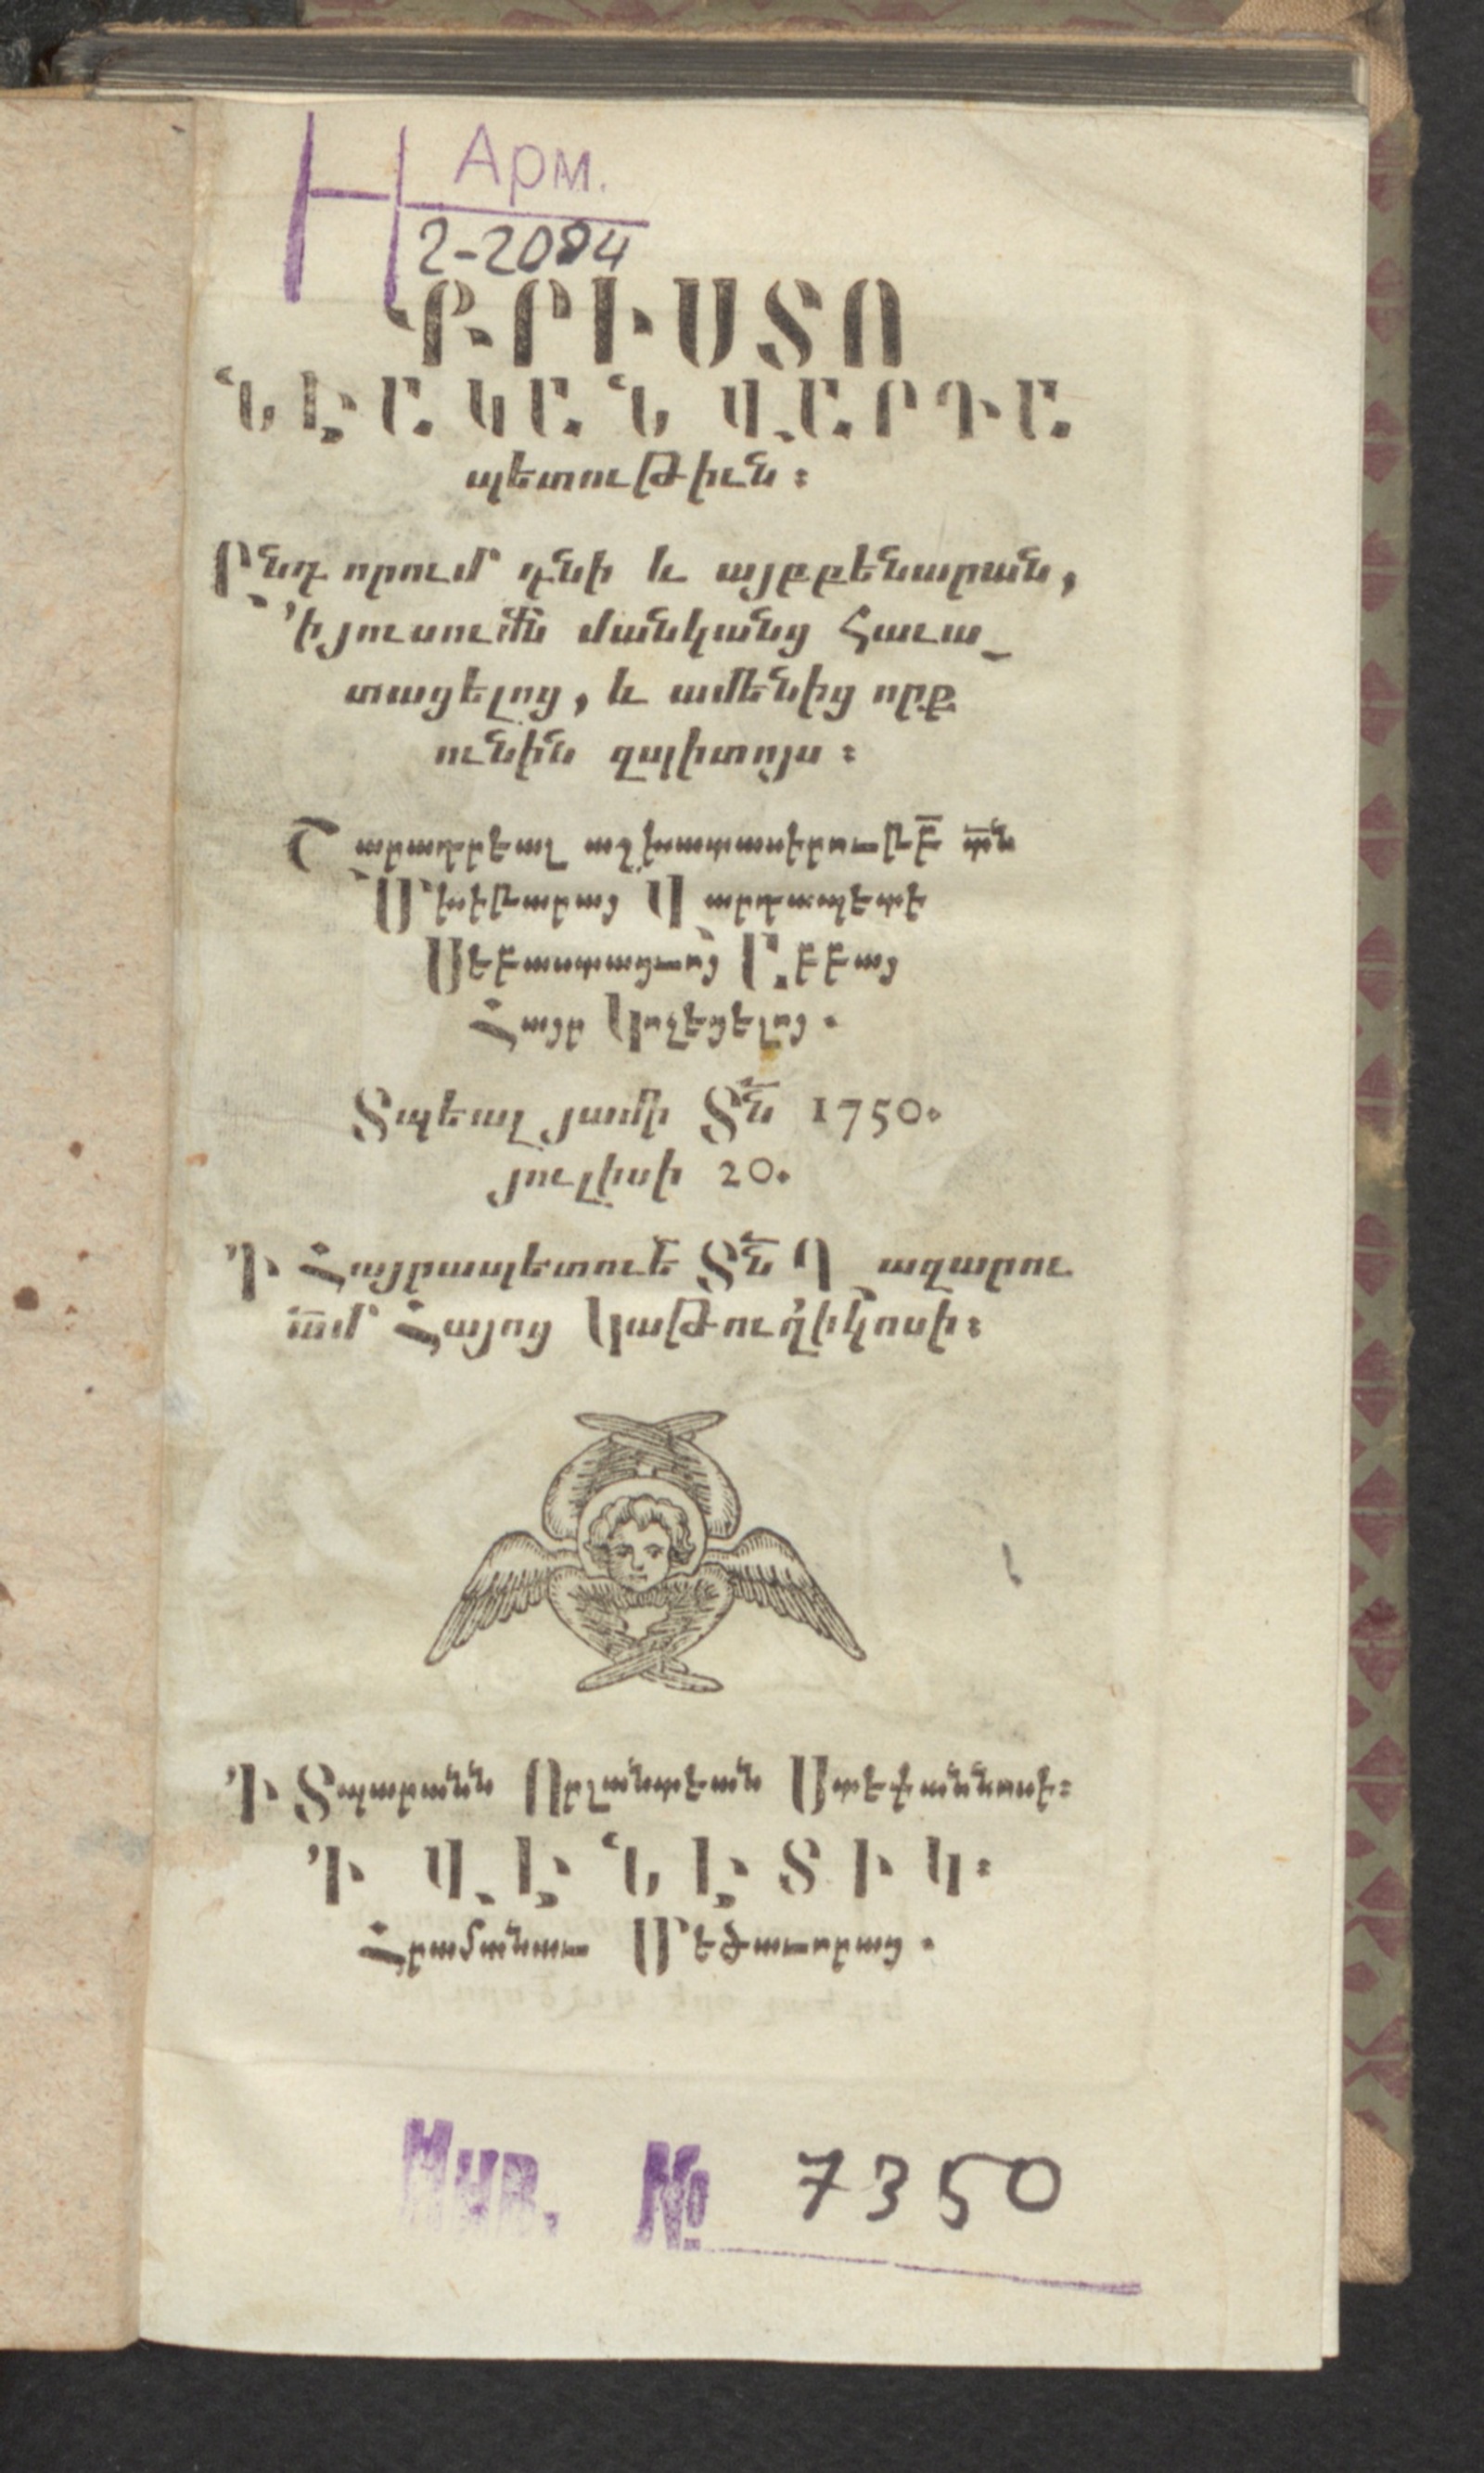 Н Арм.
2-2094
ՔՐԻՍՏՈ
ՆԷԱԿԱՆ ՎԱՐԴԱ
պետութիւն։
Ընդ որում դնի և այբբենարան,
՚ի յուսումն մանկանց Հաւա֊
տացելոց, և ամենից որք
ունին զպիտոյս։
Շարադրեալ աշխատասիրութբ տն
Մխիթարայ Վարդապետի
Սեբաստացւոյ Աբբայ
Հայր կոչեցելոյ.
Տպեալ յամի Տն 1750.
յուլիսի 20.
Ի Հայրապետուե Տն Ղազարու
ամ Հայոց կաթուղիկոսի։
Ի Տպարանն Որլանտեան Ստեփաննոսի։
Ի ՎԷՆԷՏԻԿ։
Հրամանաւ Մեծաւորաց.
Инв. № 7350